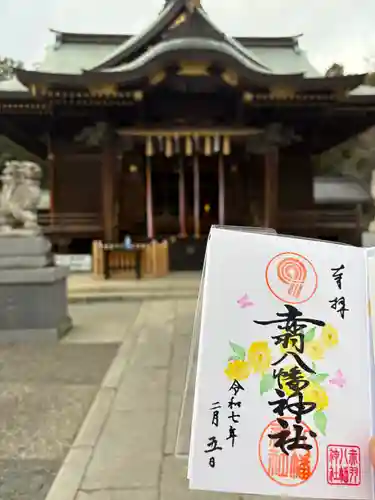 奉拝
赤羽八幡神社
令和七年
二月五日
赤羽
八幡
神社